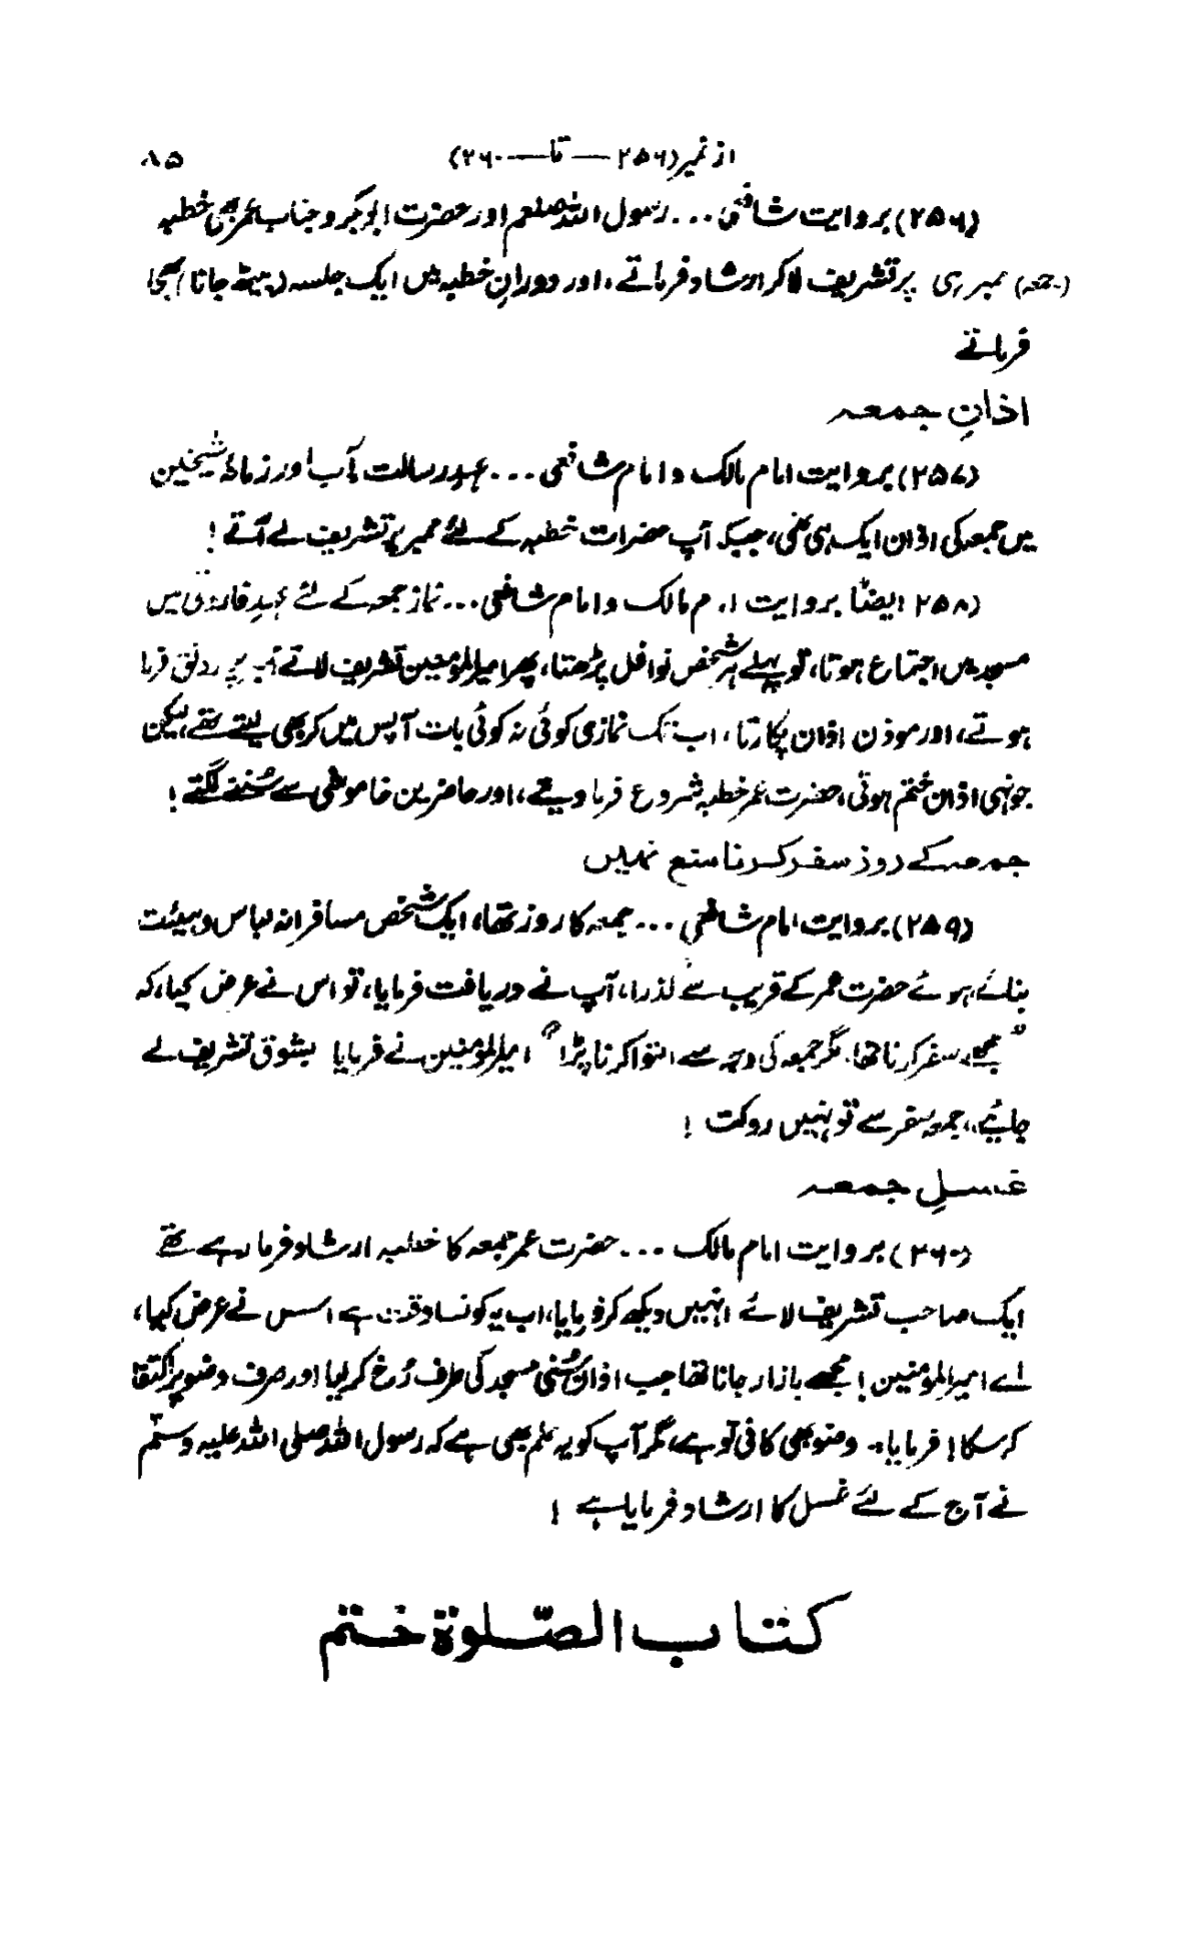 از نمبر (۲۵۶ — تا — ۲۶۰) ۸۵
(۲۵۶) بروایت شافعی ... رسول اللہ صلعم اور حضرت ابو بکر و جناب عمر بھی خطبہ
(جمعہ) ممبر ہی پر تشریف لا کر ارشاد فرماتے، اور دورانِ خطبہ میں ایک جلسہ (بیٹھ جانا) بھی
فرماتے
اذانِ جمعہ
(۲۵۷) بروایت امام مالک و امام شافعی ... عہدِ رسالت مآب اور زمانۂ شیخین
میں جمعہ کی اذان ایک ہی تھی، جبکہ آپ حضرات خطبہ کے لئے ممبر پر تشریف لے آتے!
(۲۵۸ ایضاً بروایت امام مالک و امام شافعی ... نماز جمعہ کے لئے عہدِ فاروقی میں
مسجد میں اجتماع ہوتا، تو پہلے ہر شخص نوافل پڑھتا، پھر امیر المؤمنین تشریف لاتے ممبر پر رونق فرما
ہوتے، اور موذن اذان پکارتا، اب تک نمازی کوئی نہ کوئی بات آپس میں کر بھی لیتے تھے، لیکن
جونہی اذان ختم ہوتی، حضرت عمر خطبہ شروع فرما دیتے، اور حاضرین خاموشی سے سُننے لگتے!
جمعہ کے روز سفر کرنا منع نہیں
(۲۵۹) بروایت امام شافعی ... جمعہ کا روز تھا، ایک شخص مسافرانہ لباس و ہیئت
بنائے ہوئے حضرت عمر کے قریب سے گذرا، آپ نے دریافت فرمایا، تو اس نے عرض کیا، کہ
"مجھے سفر کرنا تھا. مگر جمعہ کی وجہ سے التوا کرنا پڑا" امیر المؤمنین نے فرمایا بشوق تشریف لے
جائیے، جمعہ سفر سے تو نہیں روکتا!
غسلِ جمعہ
(۲۶۰) بروایت امام مالک ... حضرت عمر جمعہ کا خطبہ ارشاد فرما رہے تھے
ایک صاحب تشریف لائے انہیں دیکھ کر فرمایا، اب یہ کونسا وقت ہے اس نے عرض کیا،
اے امیر المؤمنین! مجھے بازار جانا تھا جب اذان سُنی مسجد کی طرف رُخ کر لیا اور صرف وضو پر اکتفا
کر سکا! فرمایا، وضو بھی کافی تو ہے، مگر آپ کو یہ علم بھی ہے کہ رسول اللہ صلی اللہ علیہ وسلم
نے آج کے لئے غسل کا ارشاد فرمایا ہے!
کتاب الصّلوٰة ختم